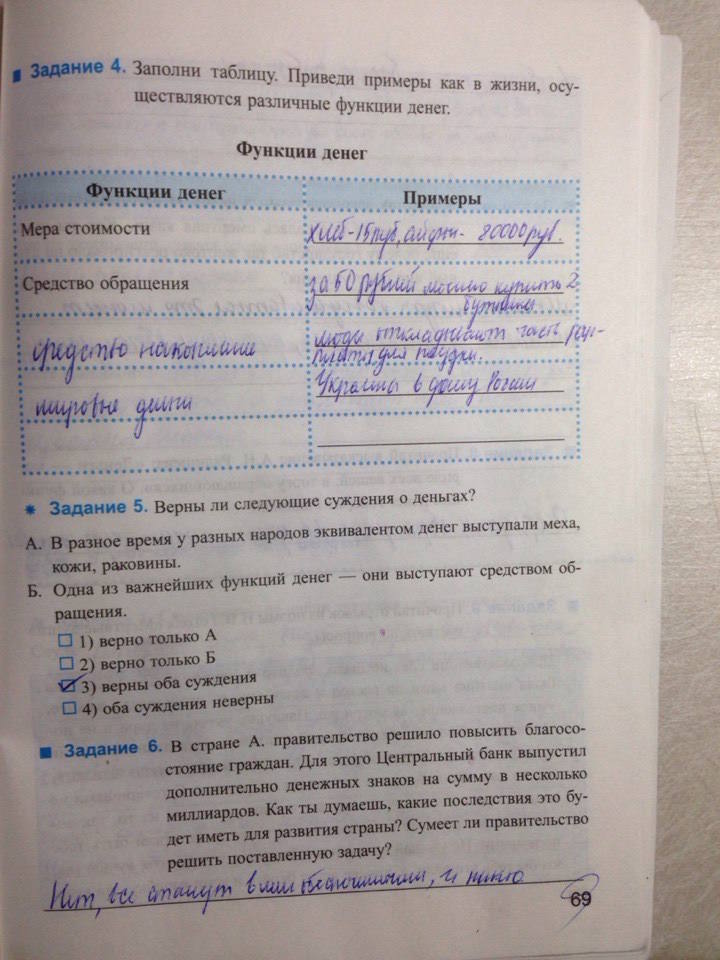 Задание 4. Заполни таблицу. Приведи примеры как в жизни, осу-
ществляются различные функции денег.
Функции денег
Функции денег Примеры
Мера стоимости хлеб-15руб, айфон- 80000руб.
Средство обращения за 50 рублей можно купить 2
бутылки
средство накопление люди откладывают часть зар-
платы для
мировые деньги Украины в России
Задание 5. Верны ли следующие суждения о деньгах?
А. В разное время у разных народов эквивалентом денег выступали меха,
кожи, раковины.
Б. Одна из важнейших функций денег — они выступают средством об-
ращения.
1) верно только А
2) верно только Б
3) верны оба суждения
4) оба суждения неверны
Задание 6. В стране А. правительство решило повысить благосо-
стояние граждан. Для этого Центральный банк выпустил
дополнительно денежных знаков на сумму в несколько
миллиардов. Как ты думаешь, какие последствия это бу-
дет иметь для развития страны? Сумеет ли правительство
решить поставленную задачу?
Нет, все станут и никто
69